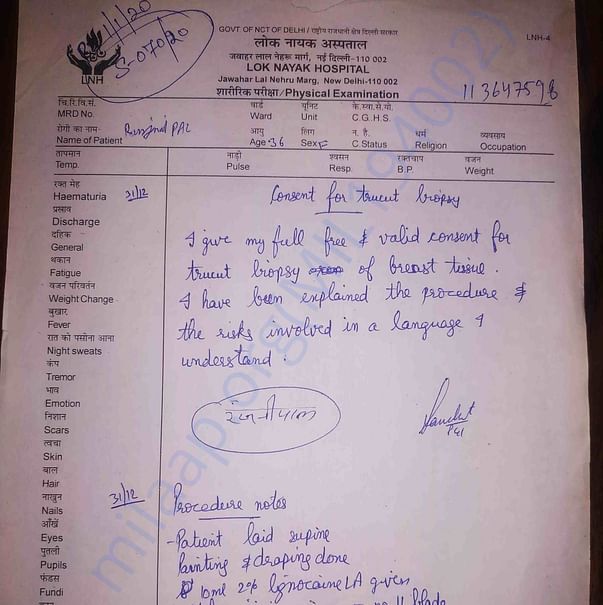 /1/20
S-070/20
LNH
GOVT. OF NCT OF DELHI / राष्ट्रीय राजधानी क्षेत्र दिल्ली सरकार
LNH-4
लोक नायक अस्पताल
जवाहर लाल नेहरू मार्ग, नई दिल्ली-110 002
LOK NAYAK HOSPITAL
Jawahar Lal Nehru Marg, New Delhi-110 002
शारीरिक परीक्षा/Physical Examination
113647598
चि.रि.वि.सं. वार्ड यूनिट के.स्वा.से.यो.
MRD No. Ward Unit C.G.H.S.
रोगी का नाम- आयु लिंग न. है. धर्म व्यवसाय
Name of Patient PAL Age 36 Sex F C.Status Religion Occupation
तापमान नाड़ी श्वसन रक्तचाप वजन
Temp. Pulse Resp. B.P. Weight
रक्त मेह
Haematuria 31/12 Consent for trucut biopsy
प्रसाव
Discharge
दहिक
General I give my full free & valid consent for
थकान
Fatigue trucut biopsy of breast tissue.
वजन परिवर्तन
Weight Change I have been explained the procedure &
बुखार
Fever the risks involved in a language I
रात को पसीना आना
Night sweats understand.
कंप
Tremor
भाव
Emotion
निशान
Scars
रंजनीपाल
त्वचा
Skin
बाल
Hair
नाखुन
Nails 31/12 Procedure notes
आँखें
Eyes - Patient laid supine
पुतली
Pupils Painting & draping done
फंडस
Fundi 10ml 2% lignocaine LA given
no 11 blade
milaap.org (MIL1940002)